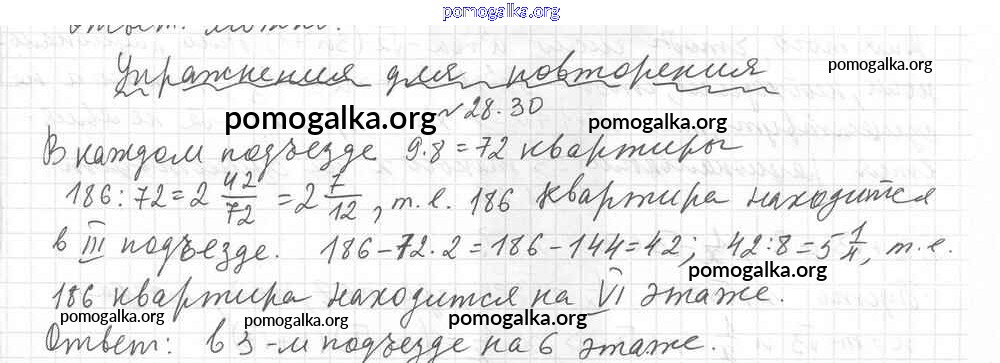 pomogalka.org
Ответ: можно.
Упражнения для повторения
pomogalka.org
№ 28.30
pomogalka.org
pomogalka.org
В каждом подъезде 9·8=72 квартиры
186:72=2 42/72 = 2 7/12, т.е. 186 квартира находится
в III подъезде. 186-72·2=186-144=42; 42:8=5 1/4, т.е.
pomogalka.org
186 квартира находится на VI этаже.
pomogalka.org
pomogalka.org
pomogalka.org
Ответ: в 3-м подъезде на 6 этаже.